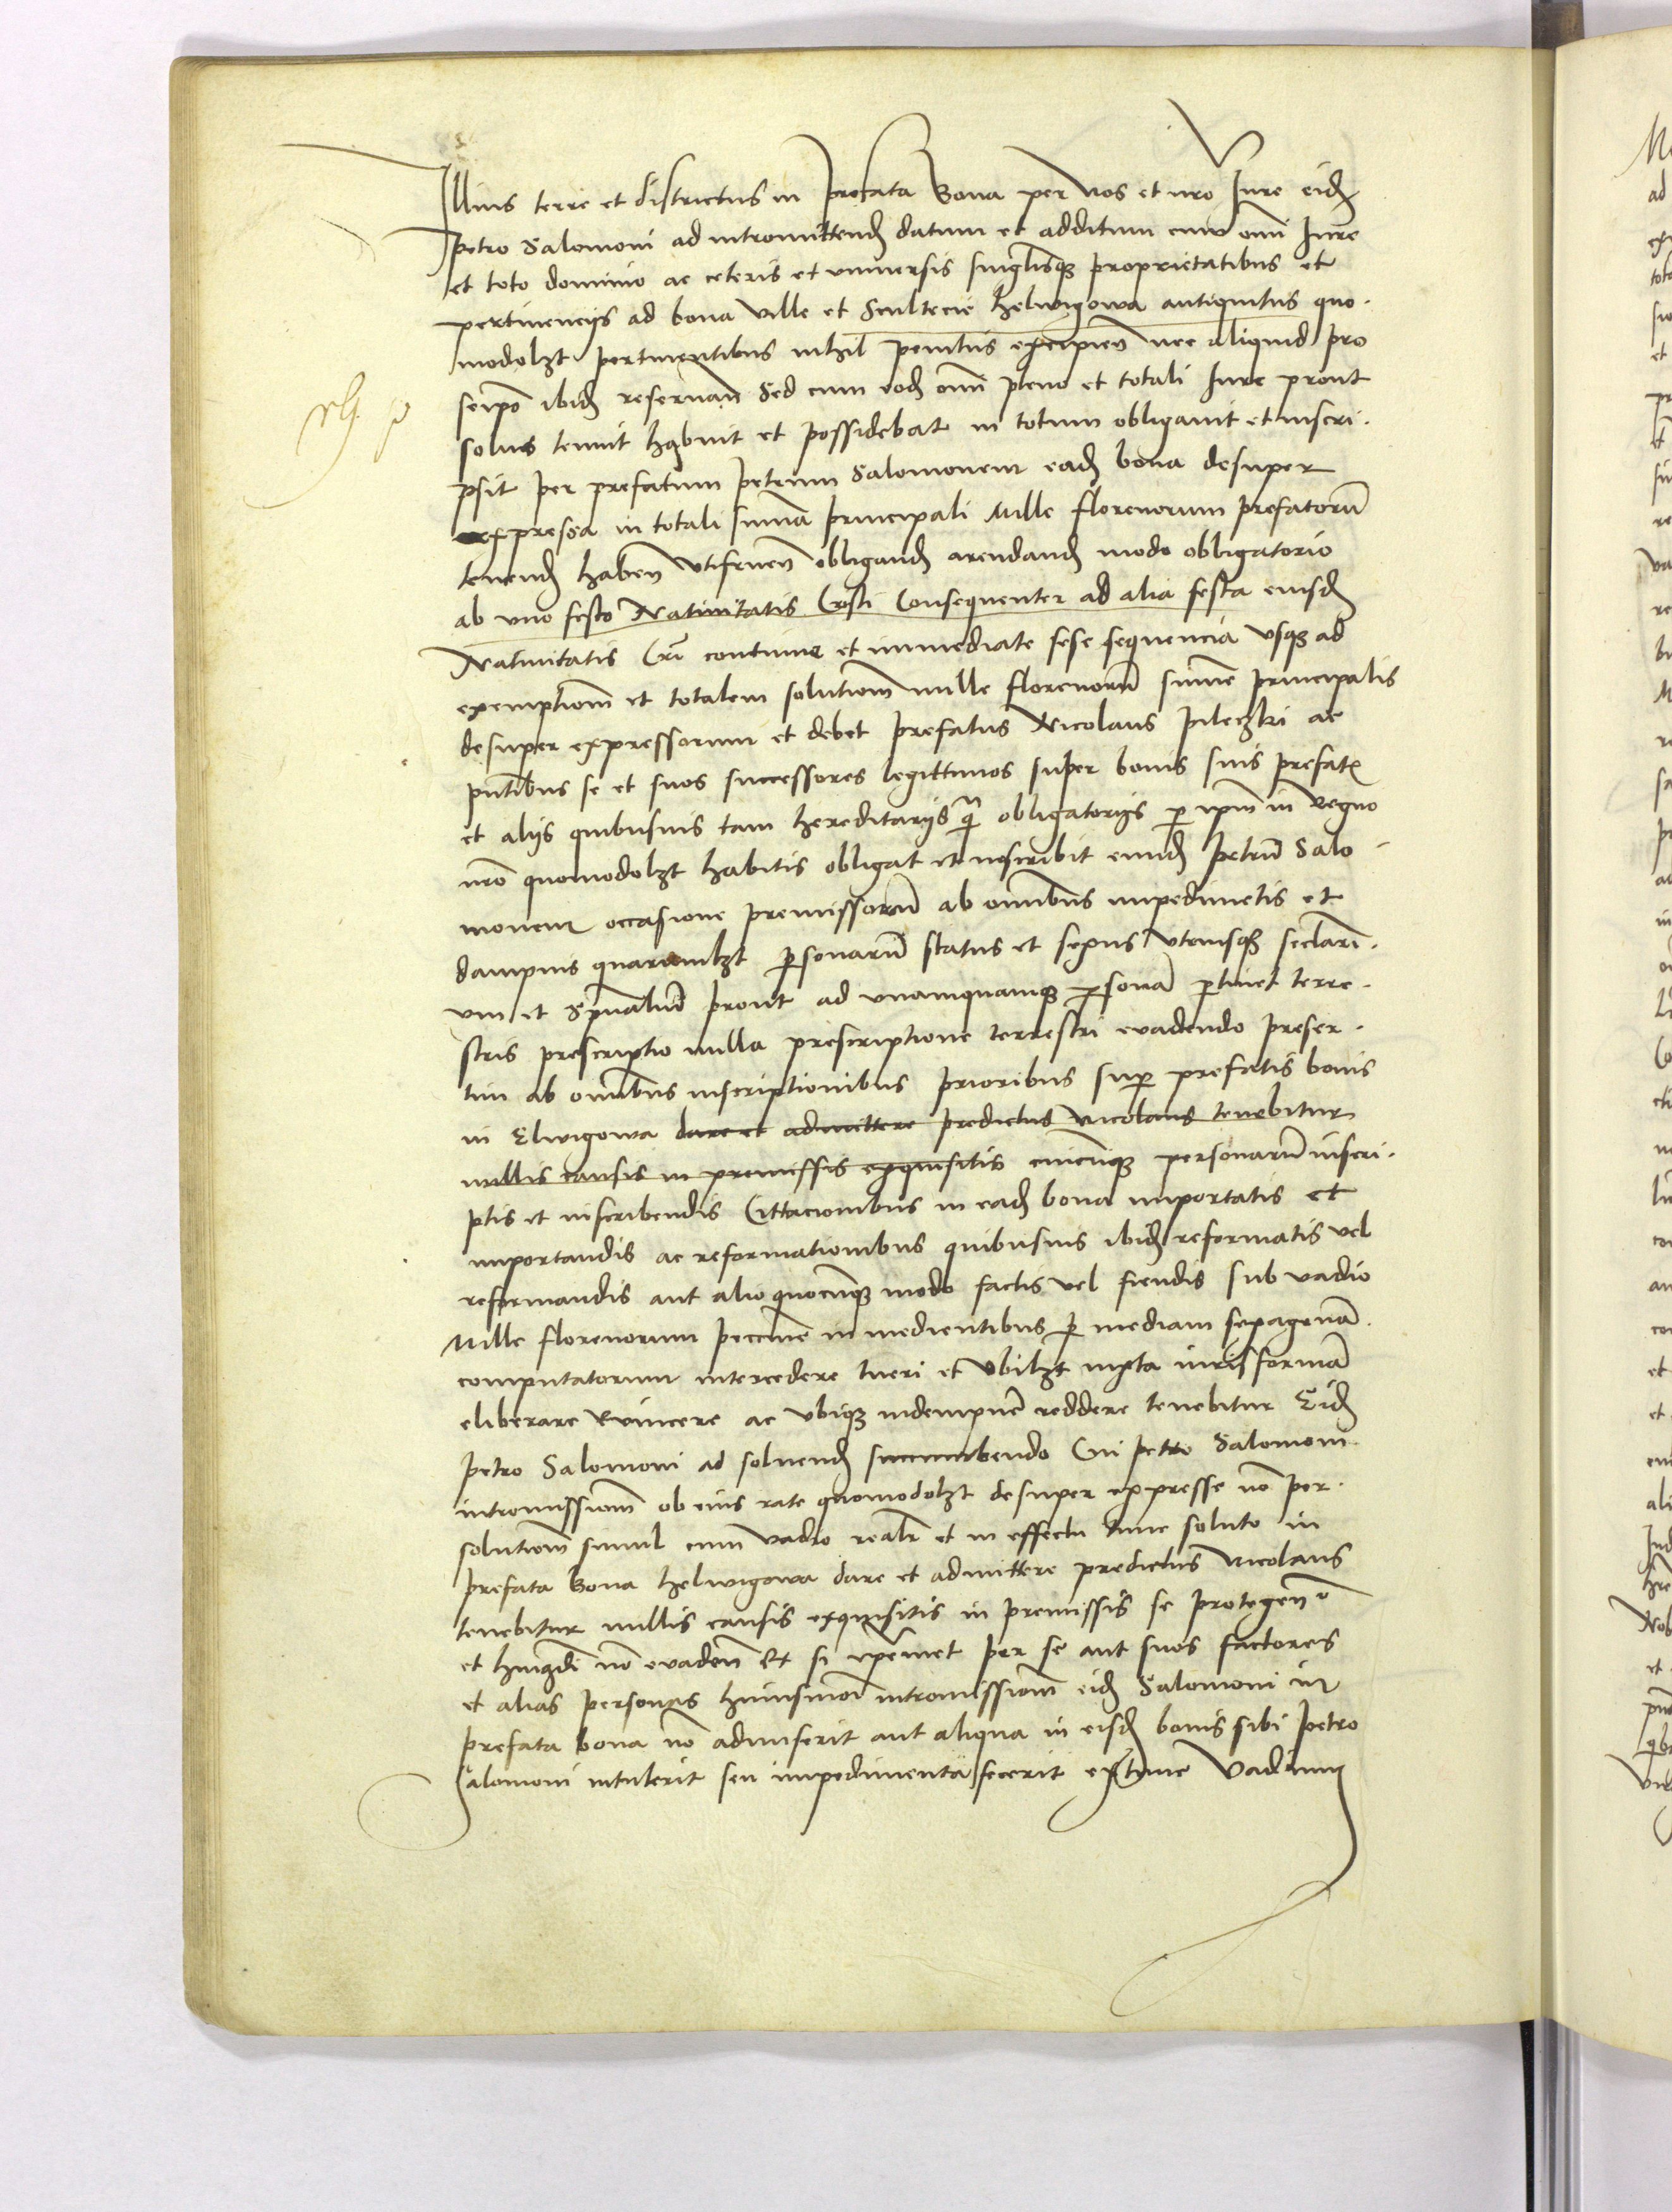 Illius terre et districtus in prefata bona per nos et nro Iure eid
petro Salomoni ad intromittend datum et additum cum omi Iure
et toto dominio ac ceteris et vniuersis singlisq proprietatibus et
pertinencijs ad bona ville et Scultecie helwigowa antiquitus quo
modolzt pertinentibus nihil penitus excipien nec aliquid pro
seipo ibid reseruan Sed cum eod omi pleno et totali Iure prout
solus tenuit habuit et possidebat in totum obligauit et inscri
psit per prefatum petrum Salomonem ead bona desuper
expressa in totali suma principali Mille florenorum prefatoru
tenend haben vtifruen obligand arendand modo obligatorio
ab vno festo Natiuitatis Cristi Consequenter ad alia festa eiusd
Natiuitatis Cri continue et immediate sese sequencia vsq ad
exemptiom et totalem solutiom mille florenoru sume principalis
desuper expressorum et debet prefatus Nicolaus pileczki ac
pntibus se et suos successores legittimos super bonis suis prefat
et alijs quibusuis tam hereditarijs q obligatorijs p ipm in regno
nro quomodolzt habitis obligat et inscribit eund petru Salo
monem occasione premissoru ab omibus impedimetis et
dampnis quarumlzt psonaru status et sexus vtriusq seclari
um et Spualiu prout ad vnamquamq psona ptinet terre
stris prescriptio nulla prescriptione terrestri euadendo preser
tim ab omibus inscriptionibus prioribus sup prefatis bonis
in Elwigowa dare et admittere predictus Nicolaus tenebitur
nullis causis in premissis exquisitis cuicuq personaru inscri
ptis et inscribendis Cittacionibus in ead bona importatis et
importandis ac reformationibus quibusuis ibid reformatis vel
reformandis aut alio quocuq modo factis vel fiendis sub vadio
Mille florenorum peccunie in medientibus p mediam sexagena
computatorum intercedere tueri et vbilzt iuxta iuris forma
eliberare Euincere ac vbiq indempne reddere tenebitur Eid
petro Salomoni ad soluend succumbendo Cui petro Salomoni
intromissiom ob eius rate quomodolzt desuper expresse no per
solutiom simul cum vadio realr et in effectu tunc soluto in
prefata bona helwigowa dare et admittere predictus Nicolaus
tenebitur nullis causis exquisitis in premissis se protegen
et no euaden Et si ipemet per se aut suos factores
et alias personas huiusmoi intromissiom eid Salomoni in
prefata bona no admiserit aut aliqua in eisd bonis sibi petro
Salomoni intulerit seu impedimenta fecerit extunc Vadium